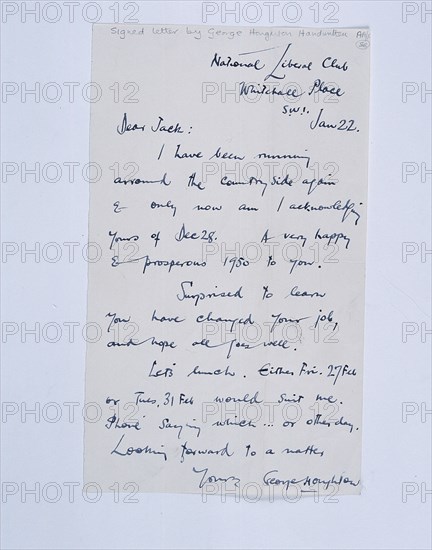 Signed letter by George Houghton Handwritten
National Liberal Club
Whitehall Place
S.W.1.
Jan 22.
Dear Jack:
I have been running
arround the countryside again
& only now am I acknowledging
yours of Dec 28. A very happy
& prosperous 1950 to you.
Surprised to learn
you have changed your job,
and hope all goes well.
Let's lunch. Either Fri. 27 Feb
or Tues, 31 Feb would suit me.
Phone saying which... or other day.
Looking forward to a natter
Yours George Houghton
PHOTO 12